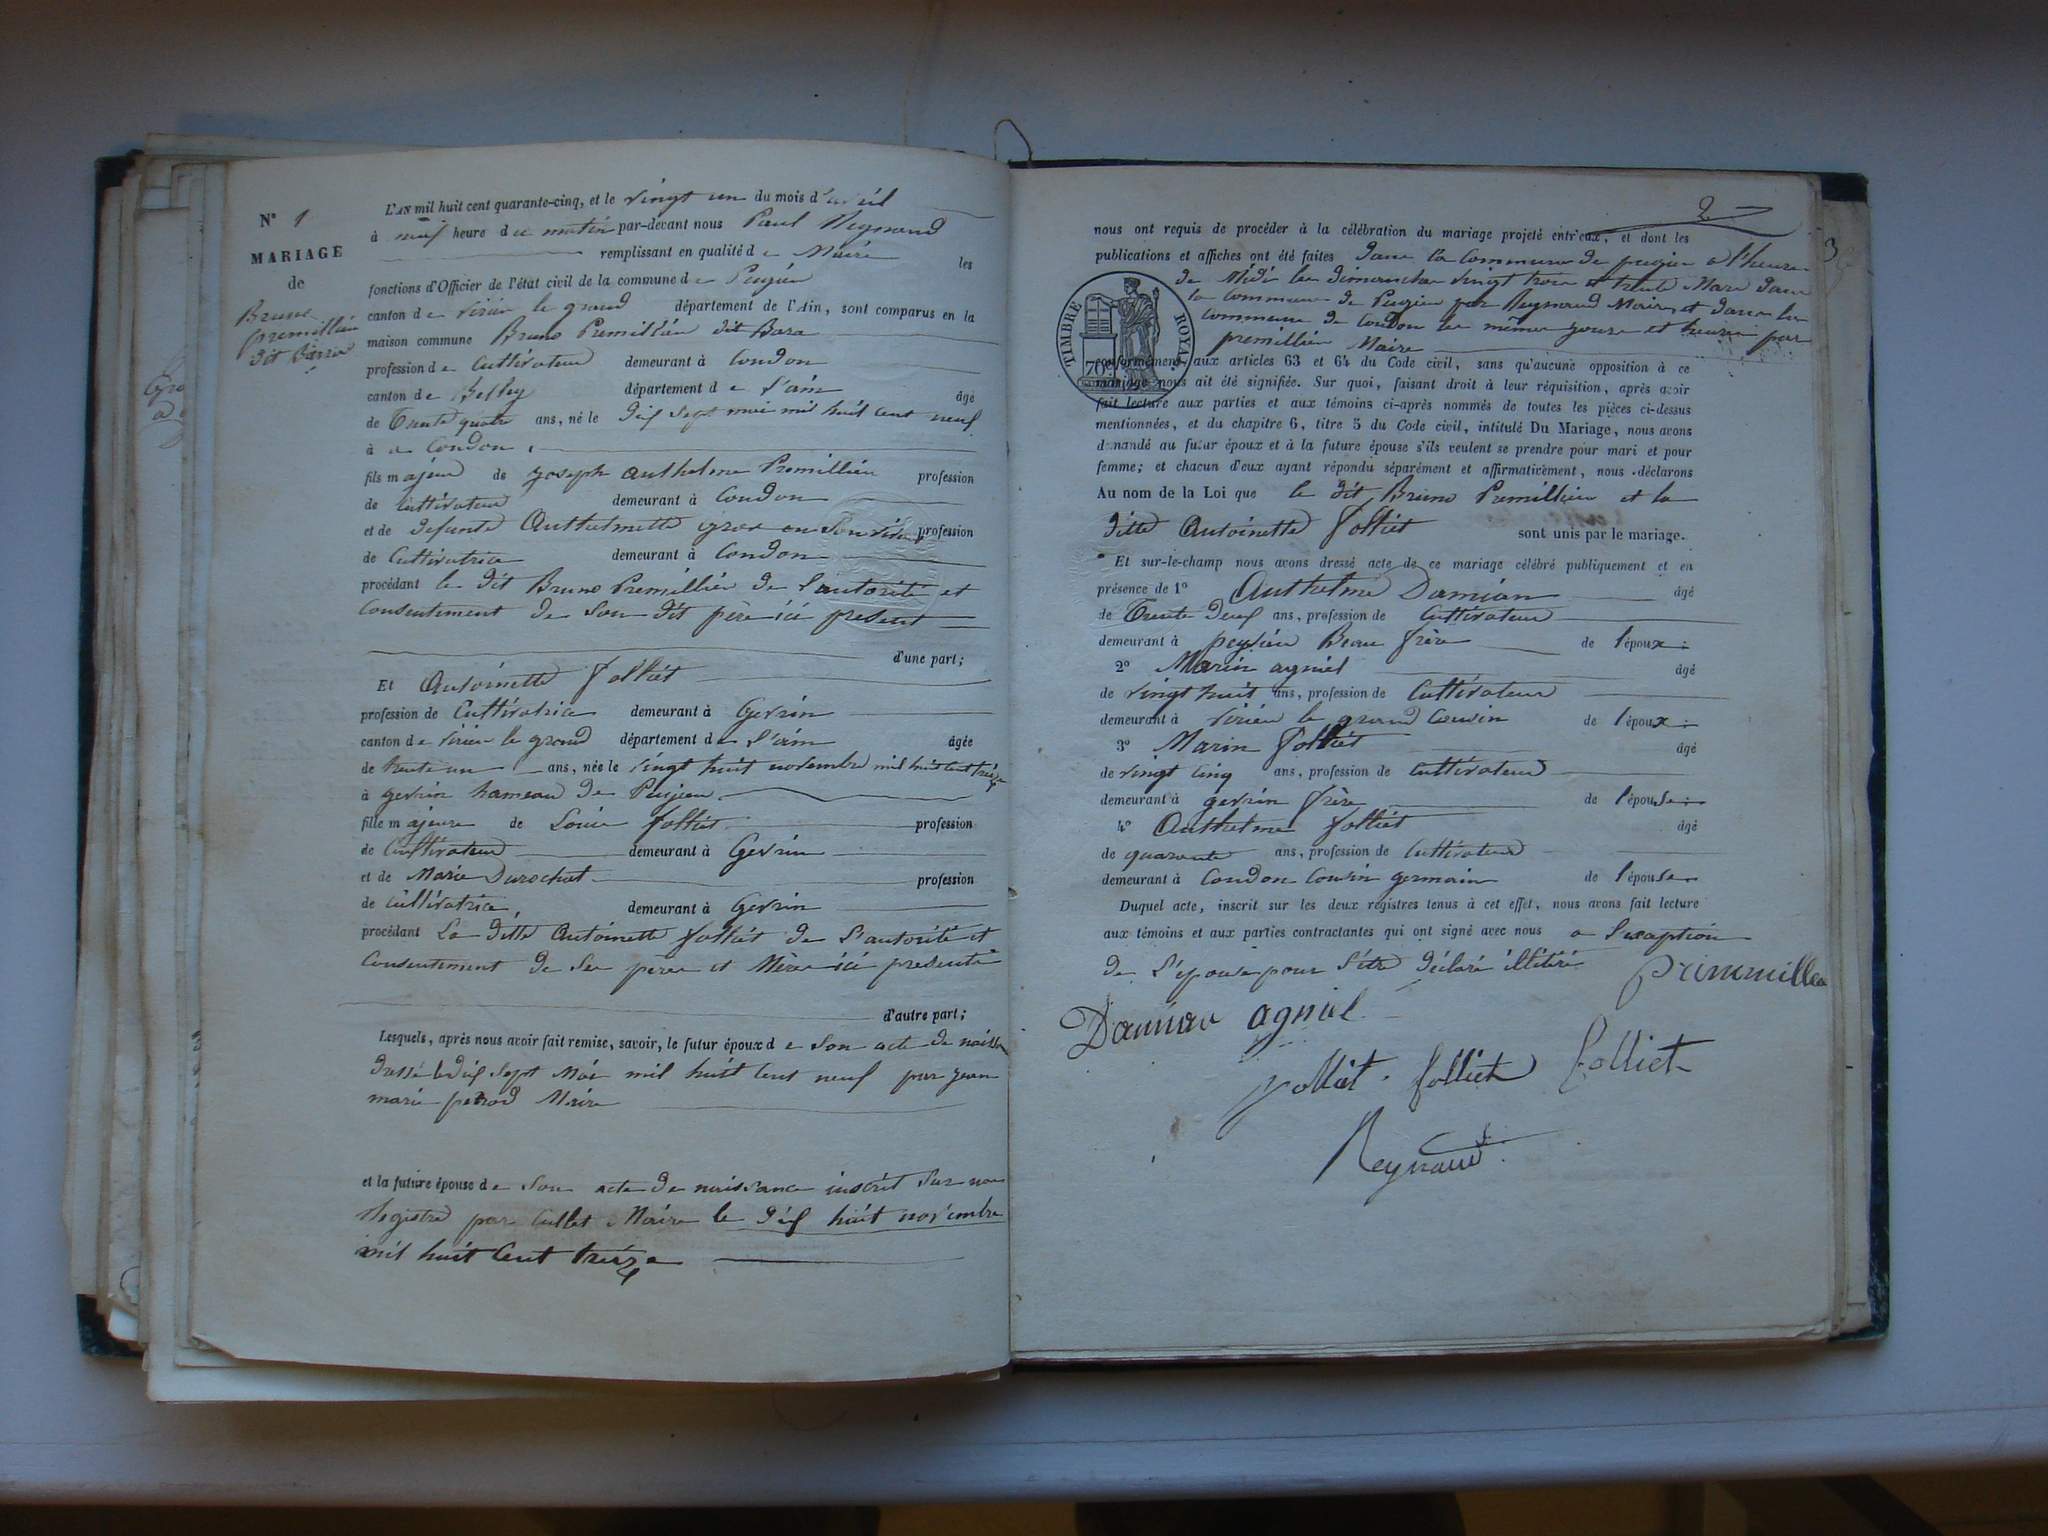 N° 1
MARIAGE
de
Bruno
premillieu
dit Bara
L'AN mil huit cent quarante-cinq, et le vingt un du mois d'avril
à neuf heure du matin par-devant nous Paul Reynaud
remplissant en qualité de Maire les
fonctions d'Officier de l'état civil de la commune de Pugieu
canton de virieu le grand département de l'Ain, sont comparus en la
maison commune Bruno Premillieu dit Bara
profession de Cultivateur demeurant à Condon
canton de Belley département de l'ain âgé
de Trente quatre ans, né le dix sept mai mil huit cent neuf
à Condon
fils majeur de joseph anthelme Premillieu profession
de Cultivateur demeurant à Condon
et de defunte Anthelmette gros en son vivant profession
de Cultivatrice demeurant à Condon
procédant le dit Bruno Premillieu de l'autorité et
Consentement de son dit père ici présent
d'une part;
Et Antoinette folliet
profession de Cultivatrice demeurant à Gevrin
canton de virieu le grand département de l'ain âgée
de trente un ans, née le vingt huit novembre mil huit cent treize
à gevrin hameau de Pugieu
fille majeure de Louis folliet profession
de Cultivateur demeurant à Gevrin
et de Marie Durochat profession
de cultivatrice demeurant à Gevrin
procédant La ditte Antoinette folliet de l'autorité et
Consentement de ses père et Mère ici présents
d'autre part;
Lesquels, après nous avoir fait remise, savoir, le futur époux de son acte de naissance
dressé le dix sept Mai mil huit cent neuf par jean
marie Maire
et la future épouse de son acte de naissance inscrit sur nos
Registre par Cullet Maire le dix huit novembre
mil huit Cent treize
2
nous ont requis de procéder à la célébration du mariage projeté entr'eux, et dont les
publications et affiches ont été faites dans la Commune de pugieu a l'heure
de Midi les dimanches vingt trois et trente Mars dans
la commune de Pugieu par Reynaud Maire et dans la
Commune de Condon les mêmes jours et heures par
premillieu Maire
TIMBRE ROYAL
70c
conformément aux articles 63 et 64 du Code civil, sans qu'aucune opposition à ce
mariage nous ait été signifiée. Sur quoi, faisant droit à leur réquisition, après avoir
fait lecture aux parties et aux témoins ci-après nommés de toutes les pièces ci-dessus
mentionnées, et du chapitre 6, titre 5 du Code civil, intitulé Du Mariage, nous avons
demandé au futur époux et à la future épouse s'ils veulent se prendre pour mari et pour
femme; et chacun d'eux ayant répondu séparément et affirmativement, nous déclarons
Au nom de la Loi que le dit Bruno Premillieu et la
ditte Antoinette folliet sont unis par le mariage.
Et sur-le-champ nous avons dressé acte de ce mariage célébré publiquement et en
présence de 1° Anthelme Damian âgé
de Trente deux ans, profession de Cultivateur
demeurant à pugieu Beau frère de l'époux
2° Marin agniel âgé
de vingt huit ans, profession de Cultivateur
demeurant à virieu le grand Cousin de l'époux
3° Marin folliet âgé
de vingt cinq ans, profession de Cultivateur
demeurant à gevrin frère de l'épouse
4° Anthelme folliet âgé
de quarante ans, profession de Cultivateur
demeurant à Condon Cousin germain de l'épouse
Duquel acte, inscrit sur les deux registres tenus à cet effet, nous avons fait lecture
aux témoins et aux parties contractantes qui ont signé avec nous a l'exeption
de l'épouse pour s'être déclaré illitéré primmillieu
Damian agniel
folliet folliet folliet
Reynaud
3